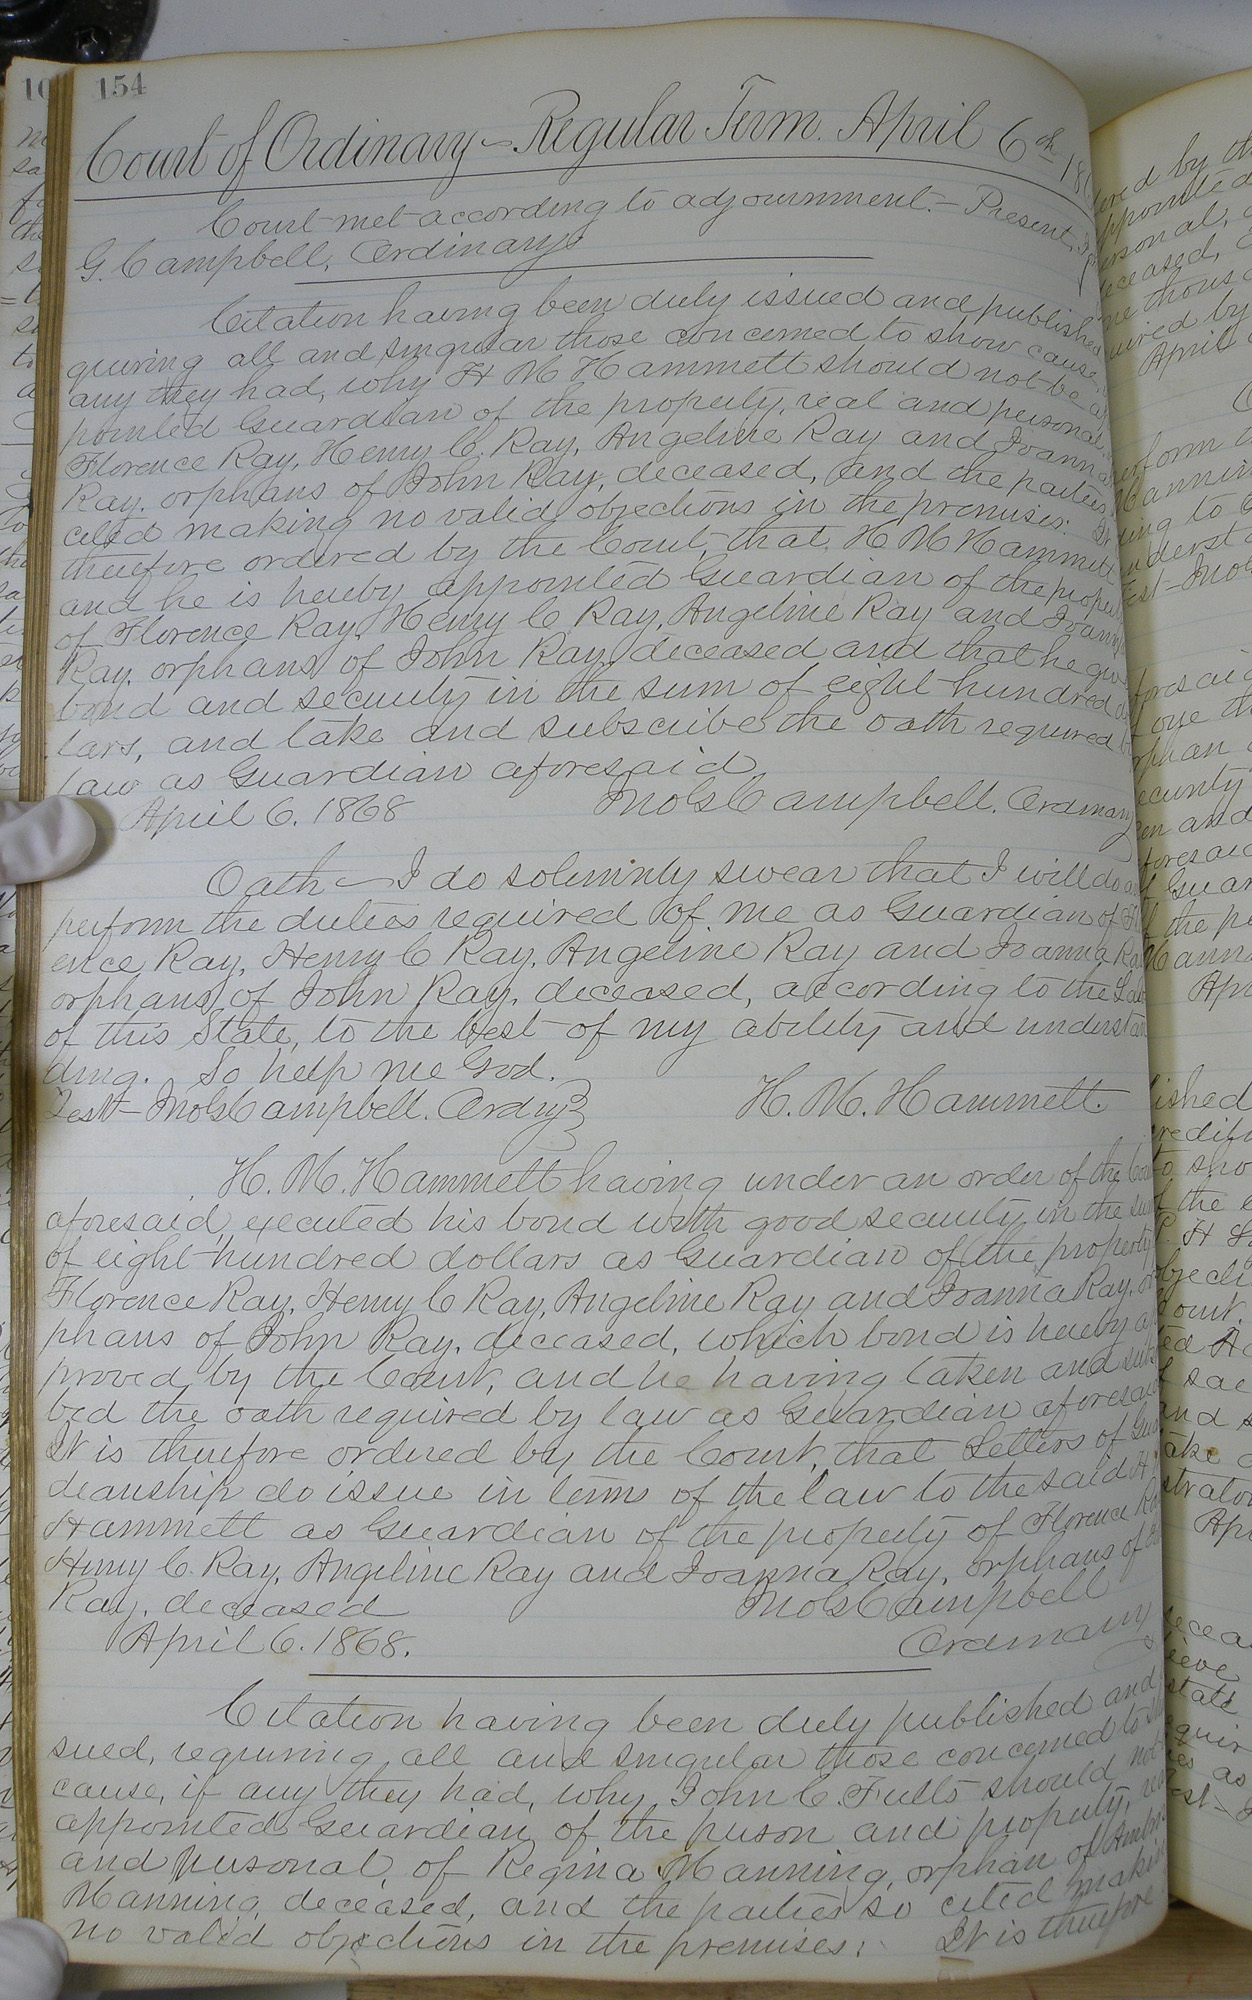 154
Court of Ordinary - Regular Term. April 6th
Court met according to adjournment. - Present,
G. Campbell, Ordinary
Citation having been duly issued and published
quiring all and singular those concerned to show cause,
any they had, why H M Hammett should not be ap
pointed Guardian of the property, real and personal
Florence Ray, Henry C. Ray, Angeline Ray and Joanna
Ray, orphans of John Ray, deceased, and the parties
cited making no valid objections in the premises: It
therefore ordered by the Court, that H M Hammett
and he is hereby appointed Guardian of the property
of Florence Ray, Henry C Ray, Angeline Ray and Joanna
Ray, orphans of John Ray, deceased and that he give
bond and security in the sum of eight hundred
lars, and take and subscribe the oath required
law as Guardian aforesaid
April 6. 1868 Jno G Campbell. Ordinary
Oath - I do solemnly swear that I will do and
perform the duties required of me as Guardian of
ence Ray, Henry C Ray, Angeline Ray and Joanna Ray
orphans of John Ray, deceased, according to the Law
of this State, to the best of my ability and understan
ding. So help me God.
Test - Jno G Campbell. Ordny H. M. Hammett.
H. M. Hammett having under an order of the Court
aforesaid, executed his bond with good security in the sum
of eight hundred dollars as Guardian of the property
Florence Ray, Henry C Ray, Angeline Ray and Joanna Ray, or
phans of John Ray, deceased, which bond is hereby ap
proved by the Court, and he having taken and subscri
bed the oath required by law as Guardian aforesaid
It is therefore ordered by the Court, that Letters of Guar
deanship do issue in terms of the law to the said H
Hammett as Guardian of the property of Florence Ray
Henry C. Ray, Angeline Ray and Joanna Ray, orphans of
Ray, deceased Jno G Campbell
April 6. 1868. Ordinary
Citation having been duly published and
sued, requiring all and singular those concerned to
cause, if any they had, why John C. Fults should not
appointed Guardian of the person and property, real
and personal, of Regina Manning, orphan of
Manning, deceased, and the parties so cited making
no valid objections in the premises: It is therefore